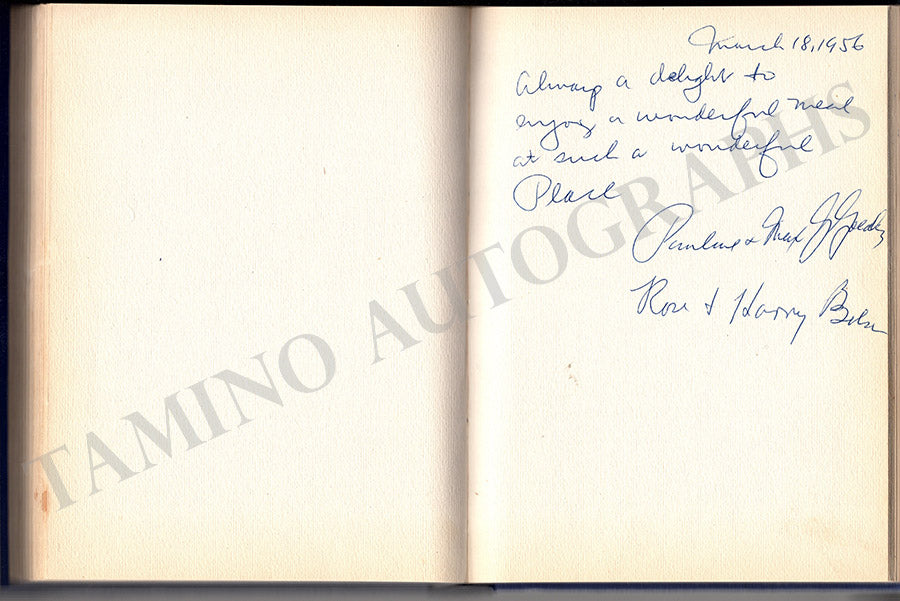 March 18, 1956
Always a delight to
enjoy a wonderful meal
at such a wonderful
Place
Pauline & Max J.
Rose & Harry
TAMINO AUTOGRAPHS